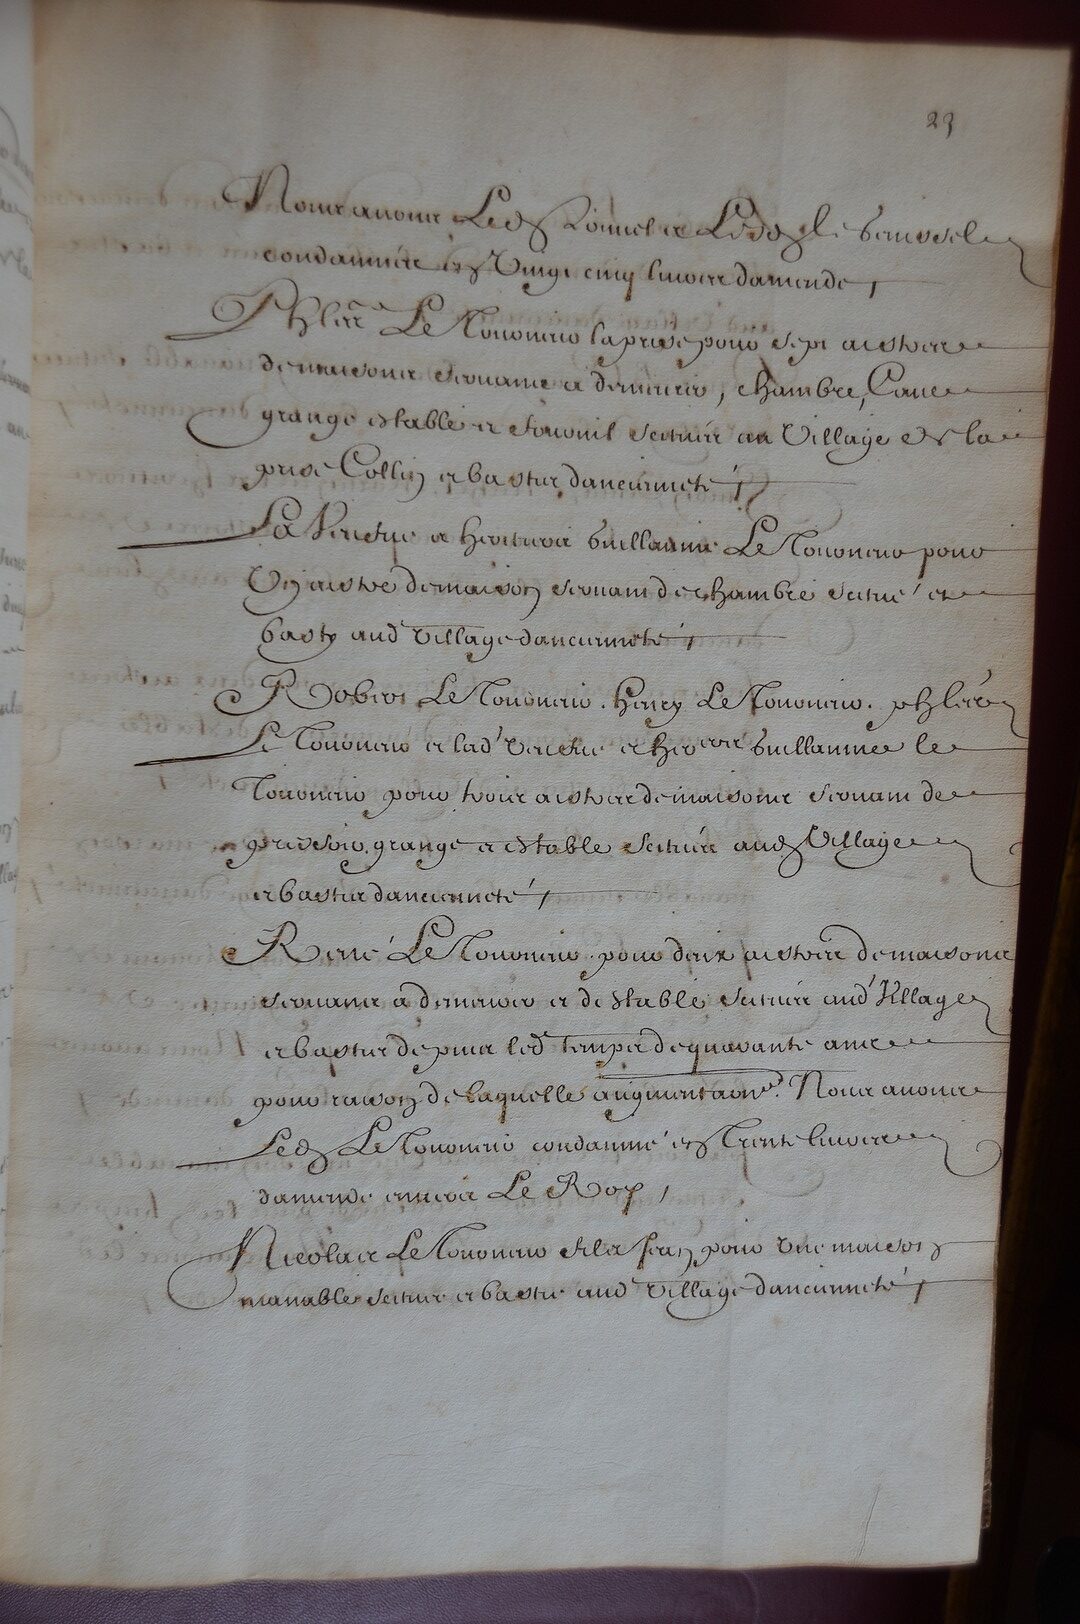 23
Nous avons Led Lionnel et Led de boisdel
condamnés en Vingt cinq livres damende,
Phlés Le Tonnerio la prise pour sept aistres
de maisons servans a demeurer, chambre, Cave
grange estable et fournil scitués au Village de la
prise Collin et bastis dancienneté,
La Veufue et heritiers Guillaume Le Tonnerio pour
Un aistre de maison servant de chambre scitué et
basty aud Village dancienneté,
Robert Le Tonnerio. Henry Le Tonnerio. phles
Le Tonnerio et lad Veufue et herers Guillaume le
Tonnerio pour trois aistres de maisons servans de
pressoir, grange et estable scitués aud Village
et bastis dancienneté,
René Le Tonnerio pour deux aistres de maisons
servans a demeurer et destable scitués aud Village
et bastis depuis led temps de quarante ans
pour raison de laquelle augmentaon. Nous avons
Led Le Tonnerio condamné en Trente livres
damende envers Le Roy,
Nicolas Le Tonnerio fils Jean pour une maison
manable scituée et bastie aud Village dancienneté,